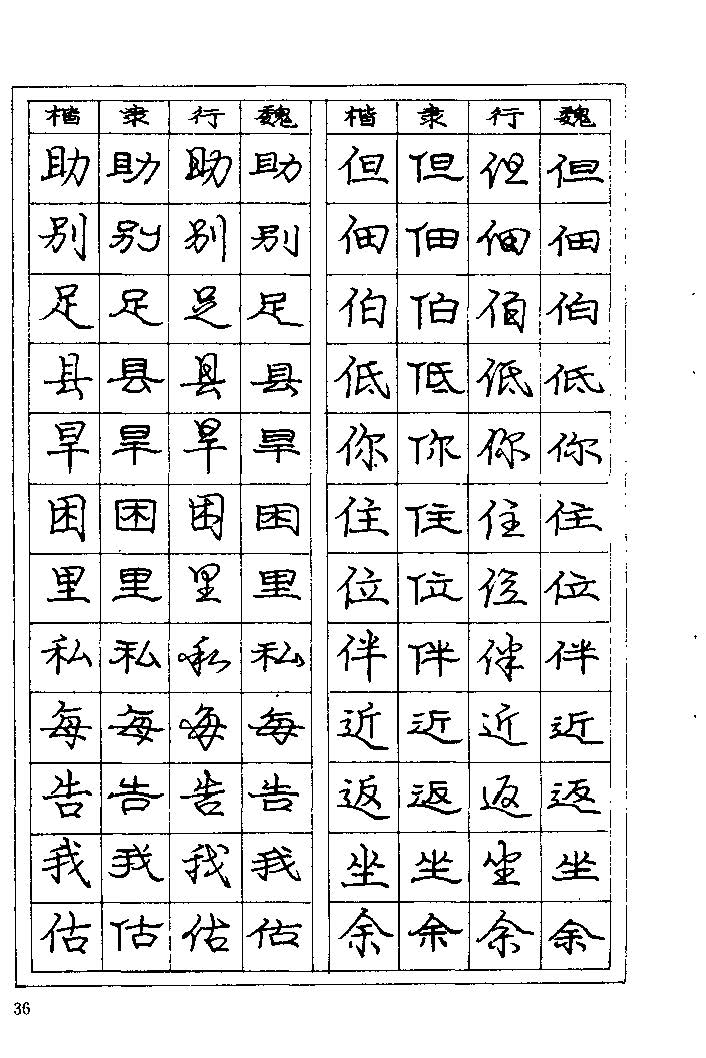 楷 隶 行 魏 楷 隶 行 魏
助 助 助 助 但 但 但 但
别 别 别 别 佃 佃 佃 佃
足 足 足 足 伯 伯 伯 伯
县 县 县 县 低 低 低 低
旱 旱 旱 旱 你 你 你 你
困 困 困 困 住 住 住 住
里 里 里 里 位 位 位 位
私 私 私 私 伴 伴 伴 伴
每 每 每 每 近 近 近 近
告 告 告 告 返 返 返 返
我 我 我 我 坐 坐 坐 坐
估 估 估 估 余 余 余 余
36